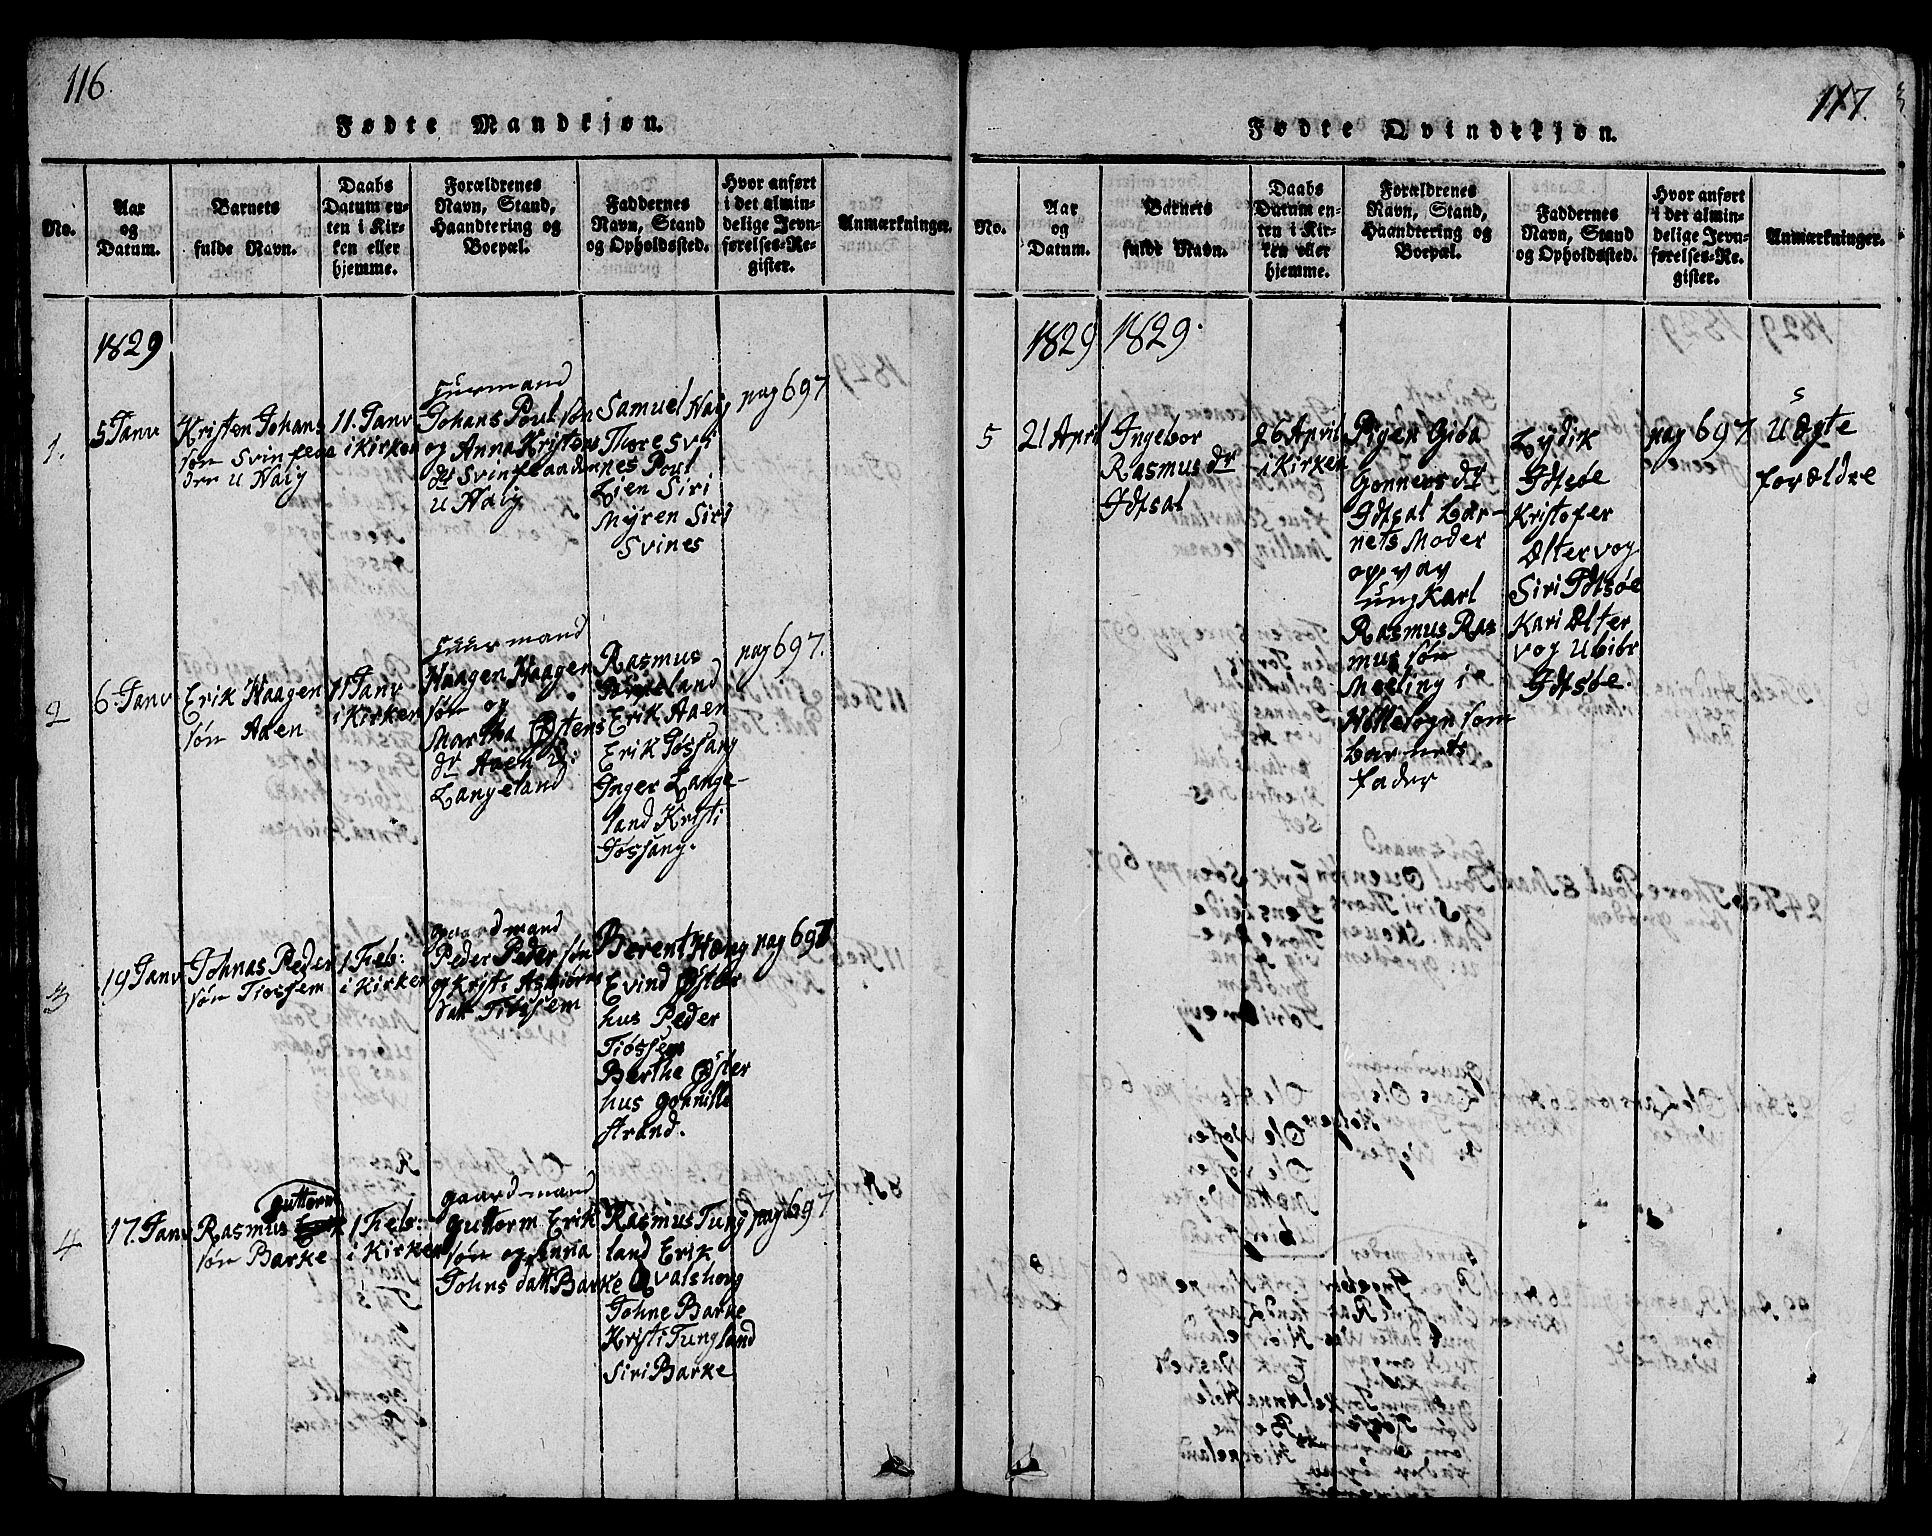 116
Fødte Mandkjøn.
No.
Aar
og
Datum.
Barnets
fulde Navn.
Daabs
Datum en-
ten i Kir-
ken eller
hjemme.
Forældrenes
Navn, Stand,
Haandtering og
Boepæl.
Faddernes
Navn, Stand
og Opholdssted.
Hvor anført
i det almin-
delige Jevn-
førelses-Re-
gister.
Anmærkninger.
1829
1.
5 Janv
Kristen Johans
søn Svinflaa
den U Nalg
11. Janv
i Kirken
Huurmand
Johans Poul søn
og Anna Kristens
dr Svinflaaden
U Nalg
Samuel Nalg
Thore Svi
nes Poul
Lien Siri
Myren Siri
Svines
pag 697
2
6. Janv
Erik Haagen
søn Aaen
11 Janv
i Kirken
Huurmand
Haagen Haagen
søn og
Martha Østens
dr Aaen U:
Langeland
Rasmus
Erik Aaen
Erik Tøssang
Inger Lange-
land Kristi
Tøssang.
pag 697.
3
19 Janv
Johnas Peder
søn Tiøssem
1 Feb:
i Kirken
gaardmand
Peder Peder søn
og Kristi Asbiørns
datt Tiøssem
Berent Høng
Evind Øster
hus Peder
Tiøssem
Berthe Øster
hus Gonnille
Strand.
pag 697
4
17. Janv
Guttorm
Rasmus Erik
søn Barke
1 Feb:
i Kirken
gaardmand
Guttorm Erik
søn og Anna
Johns datt Barke
Rasmus Tung
land Erik
Qvalshoug
Johne Barke
Kristi Tungland
Siri Barke
pag 697
117.
Fødte Qvindekjøn.
No.
Aar
og
Datum.
Barnets
fulde Navn.
Daabs
Datum en-
ten i Kir-
ken eller
hjemme.
Forældrenes
Navn, Stand,
Haandtering og
Boepæl.
Faddernes
Navn, Stand
og Opholdssted.
Hvor anført
i det almin-
delige Jevn-
førelses-Re-
gister.
Anmærkninger.
1829
1829.
5
21 April
Ingebor
Rasmus dr
Idsal
26 April
i Kirken
Pigen Giøa
Gonners dr
Idsal Bar-
nets Moder
og
ungkarl
Rasmus Ras
mus søn
Meeling i
Høllesogn som
barnets
fader
Lydik
Idsøe
Kristofer
Øltervog
Siri Idsøe
Kari Ølter
vog Ubibr
Idsøe.
pag 697
Udgte
forældre